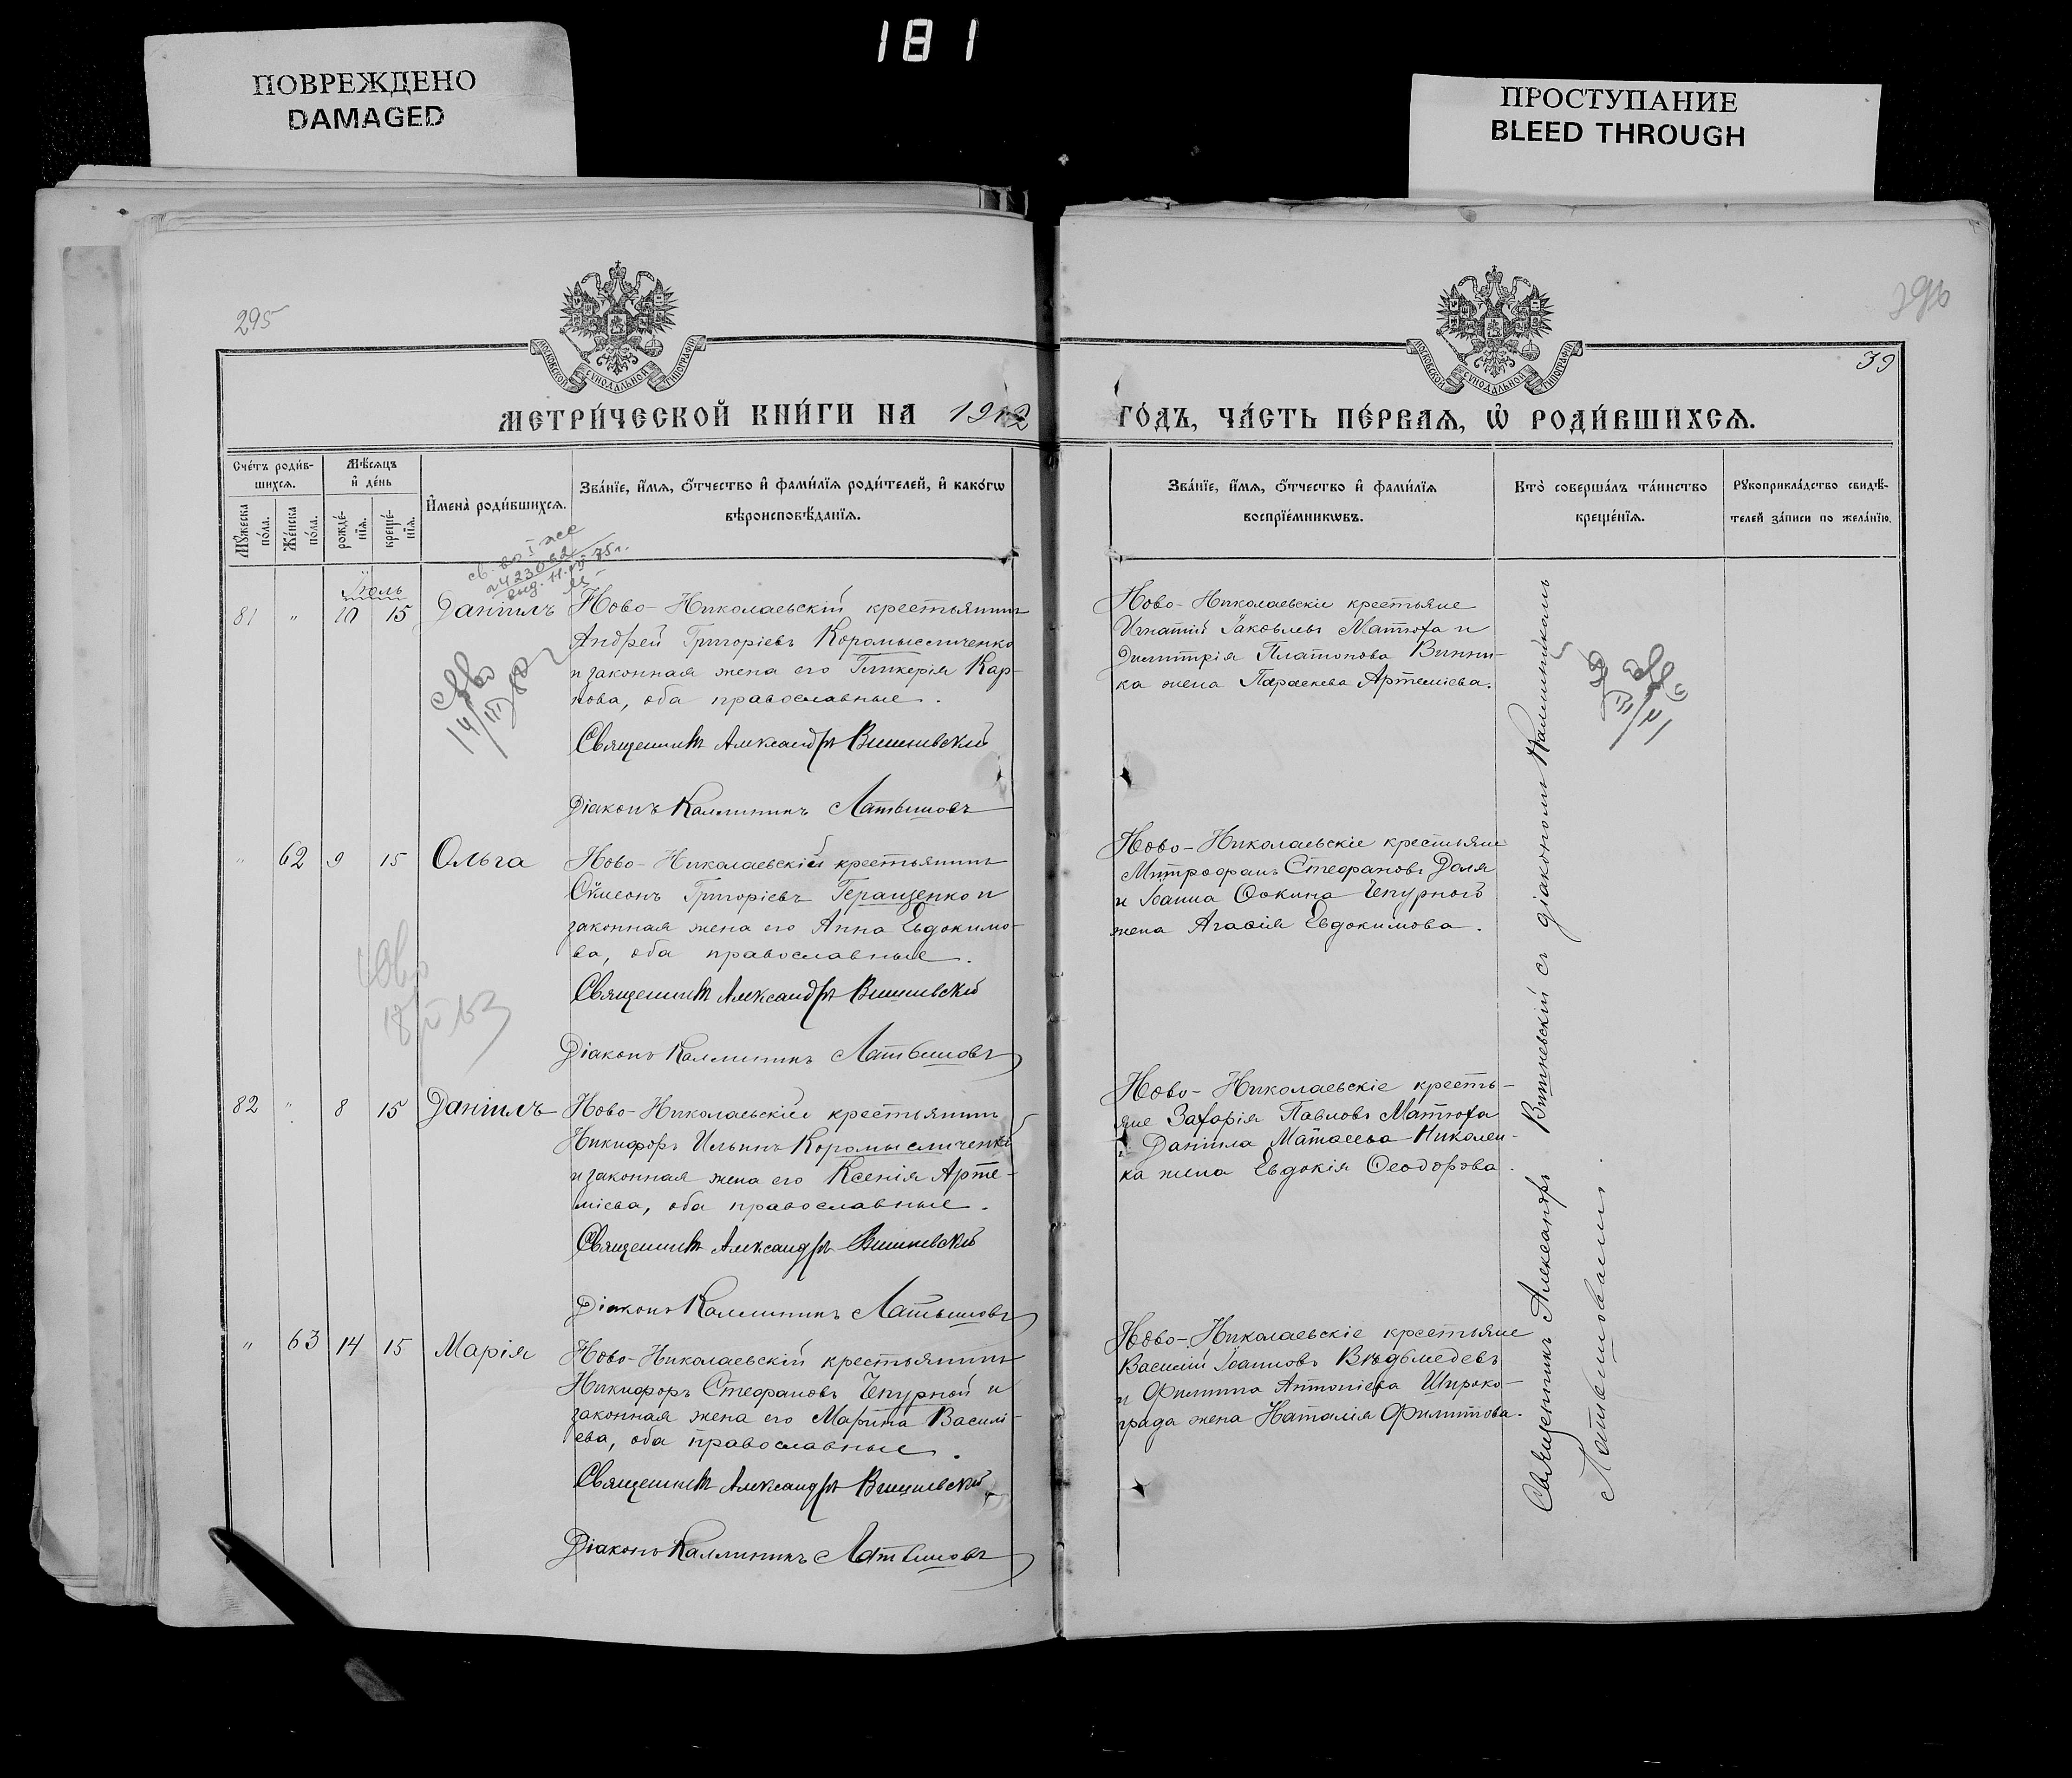 181
ПОВРЕЖДЕНО
DAMAGED
ПРОСТУПАНИЕ
BLEED THROUGH
295
296
39
МОСКОВСКОЙ СѴНОДАЛЬНОЙ ТИПОГРАФІИ
МОСКОВСКОЙ СѴНОДАЛЬНОЙ ТИПОГРАФІИ
МЕТРИ́ЧЕСКОЙ КНИ́ГИ НА 1912 ГО́ДЪ, ЧА́СТЬ ПЕ́РВАЯ, Ѡ҆ РОДИ́ВШИХСЯ.
Сче́тъ роди́в-
шихся.
Мѣ́сяцъ
и҆ де́нь
Мꙋ́жеска
по́ла.
Же́нска
по́ла.
рожде́-
нїѧ.
креще́-
нїѧ.
И҆мена̀ роди́вшихся.
Зва́нїе, и҆́мѧ, ѻ҆́тчество и҆ фами́лїѧ роди́телей, и҆ како́гѡ
вѣроисповѣ́данїѧ.
Зва́нїе, и҆́мѧ, ѻ҆́тчество и҆ фами́лїѧ
воспрїе́мникѡвъ.
Кто̀ соверша́лъ та́инство
креще́нїѧ.
Рꙋкоприкла́дство свидѣ́-
телей за́писи по жела́нїю.
Іюль
81 " 10 15 Даніилъ
Ново-Николаевскій крестьянинъ
Андрей Григоріевъ Коромысличенко
и законная жена его Гликерія Кар-
пова, оба православные.
Священникъ Александръ Вишневскій
Діаконъ Каллиникъ Латышовъ
Ново-Николаевскіе крестьяне
Игнатій Іаковлевъ Матюха и
Димитрія Платонова Винни-
ка жена Параскева Артеміева.
" 62 9 15 Ольга
Ново-Николаевскій крестьянинъ
Сѵмеонъ Григоріевъ Геращенко и
законная жена его Анна Евдокимо-
ва, оба православные.
Священникъ Александръ Вишневскій
Діаконъ Каллиникъ Латышовъ
Ново-Николаевскіе крестьяне
Митрофанъ Стефановъ Доля
и Іоанна Ѳокина Чепурного
жена Агаѳія Евдокимова.
82 " 8 15 Даніилъ
Ново-Николаевскій крестьянинъ
Никифоръ Ильинъ Коромысличенко
и законная жена его Ксенія Арте-
міева, оба православные.
Священникъ Александръ Вишневскій
Діаконъ Каллиникъ Латышовъ
Ново-Николаевскіе кресть-
яне Захарія Павловъ Матюха
и Даніила Матѳеева Николен-
ка жена Евдокія Ѳеодорова.
" 63 14 15 Марія
Ново-Николаевскій крестьянинъ
Никифоръ Стефановъ Чепурной и
законная жена его Марина Василі-
ева, оба православные.
Священникъ Александръ Вишневскій
Діаконъ Каллиникъ Латышовъ
Ново-Николаевскіе крестьяне
Василій Іоанновъ Вѣдьмедевъ
и Филиппа Антоніева Широко-
града жена Наталія Филиппова.
Священникъ Александръ Вишневскій съ діакономъ Каллиникомъ
Латышовымъ.